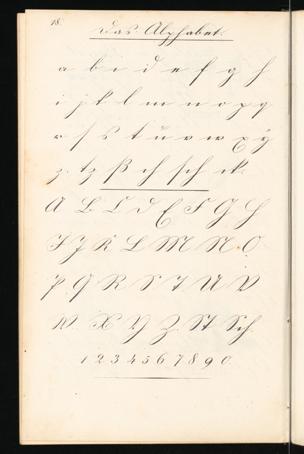 18.
Das Alphabet.
a b c d e f g h
i j k l m n o p q
r ſ s t u v w x ÿ
z. tz ß ch ſch ck.
A B C D E F G H
I J K L M N O
P Q R S T U V
W X Y Z St Sch
1 2 3 4 5 6 7 8 9 0.